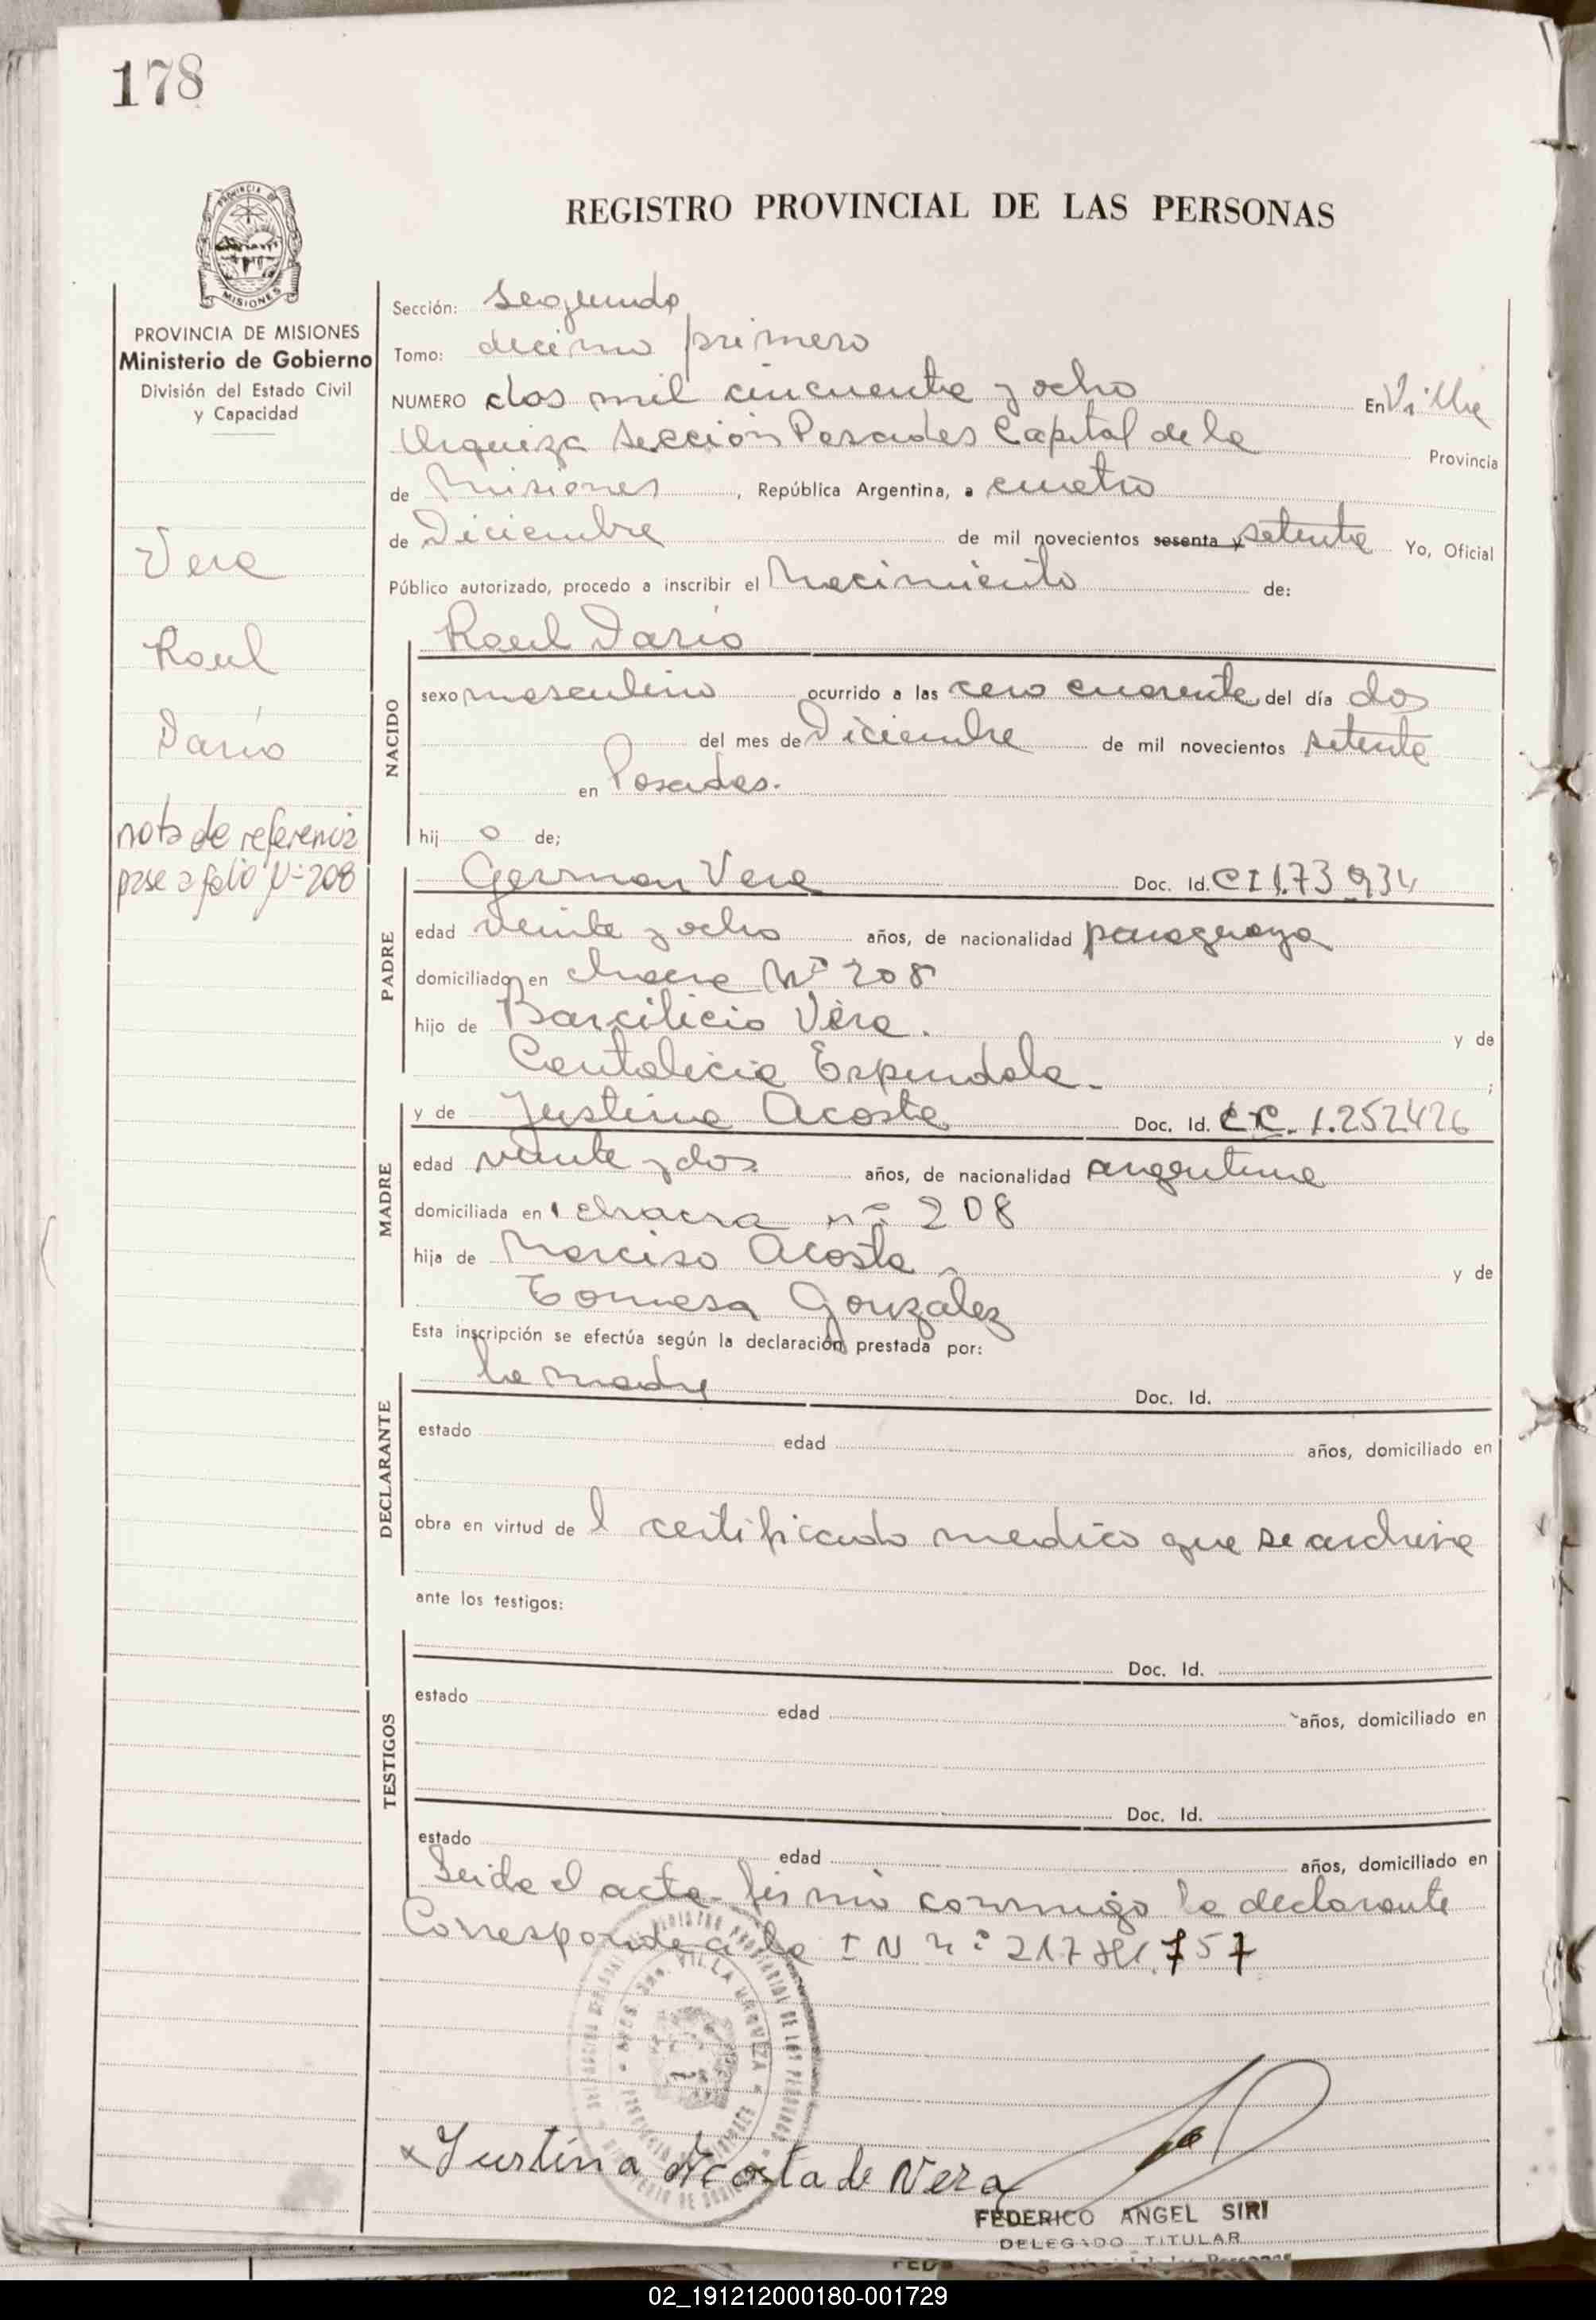 178
REGISTRO PROVINCIAL DE LAS PERSONAS
PROVINCIA DE MISIONES
Ministerio de Gobierno
División del Estado Civil
y Capacidad
Vera
Raul
Dario
nota de referencia
pase a folio Nº 208
Sección: segunda
Tomo: decimo primero
NUMERO dos mil cincuenta y ocho En Villa
Urquiza Sección Posadas Capital de la Provincia
de Misiones, República Argentina, a cuatro
de Diciembre de mil novecientos sesenta y setenta Yo, Oficial
Público autorizado, procedo a inscribir el Nacimiento de:
NACIDO
Raul Dario
sexo masculino ocurrido a las cero cuarenta del día dos
del mes de Diciembre de mil novecientos setenta
en Posadas.
hij o de;
PADRE
German Vera Doc. Id. CI 173 934
edad veinte y ocho años, de nacionalidad paraguaya
domiciliado en chacra Nº 208
hijo de Barcilicio Vera. y de
Cantalicia Espindola. ;
MADRE
y de Justina Acosta Doc. Id. L.C. 1.252426
edad veinte y dos años, de nacionalidad argentina
domiciliada en chacra nº 208
hija de Narciso Acosta y de
Tomasa Gonzalez
Esta inscripción se efectúa según la declaración prestada por:
DECLARANTE
la madre Doc. Id.
estado edad años, domiciliado en
obra en virtud de l certificado medico que se archiva
ante los testigos:
TESTIGOS
Doc. Id.
estado edad años, domiciliado en
Doc. Id.
estado edad años, domiciliado en
Leida el acta firmó conmigo la declarante
Corresponde a la I N nº 21781.757
VILLA URQUIZA
Justina Acosta de Vera
FEDERICO ANGEL SIRI
DELEGADO TITULAR
02_191212000180-001729